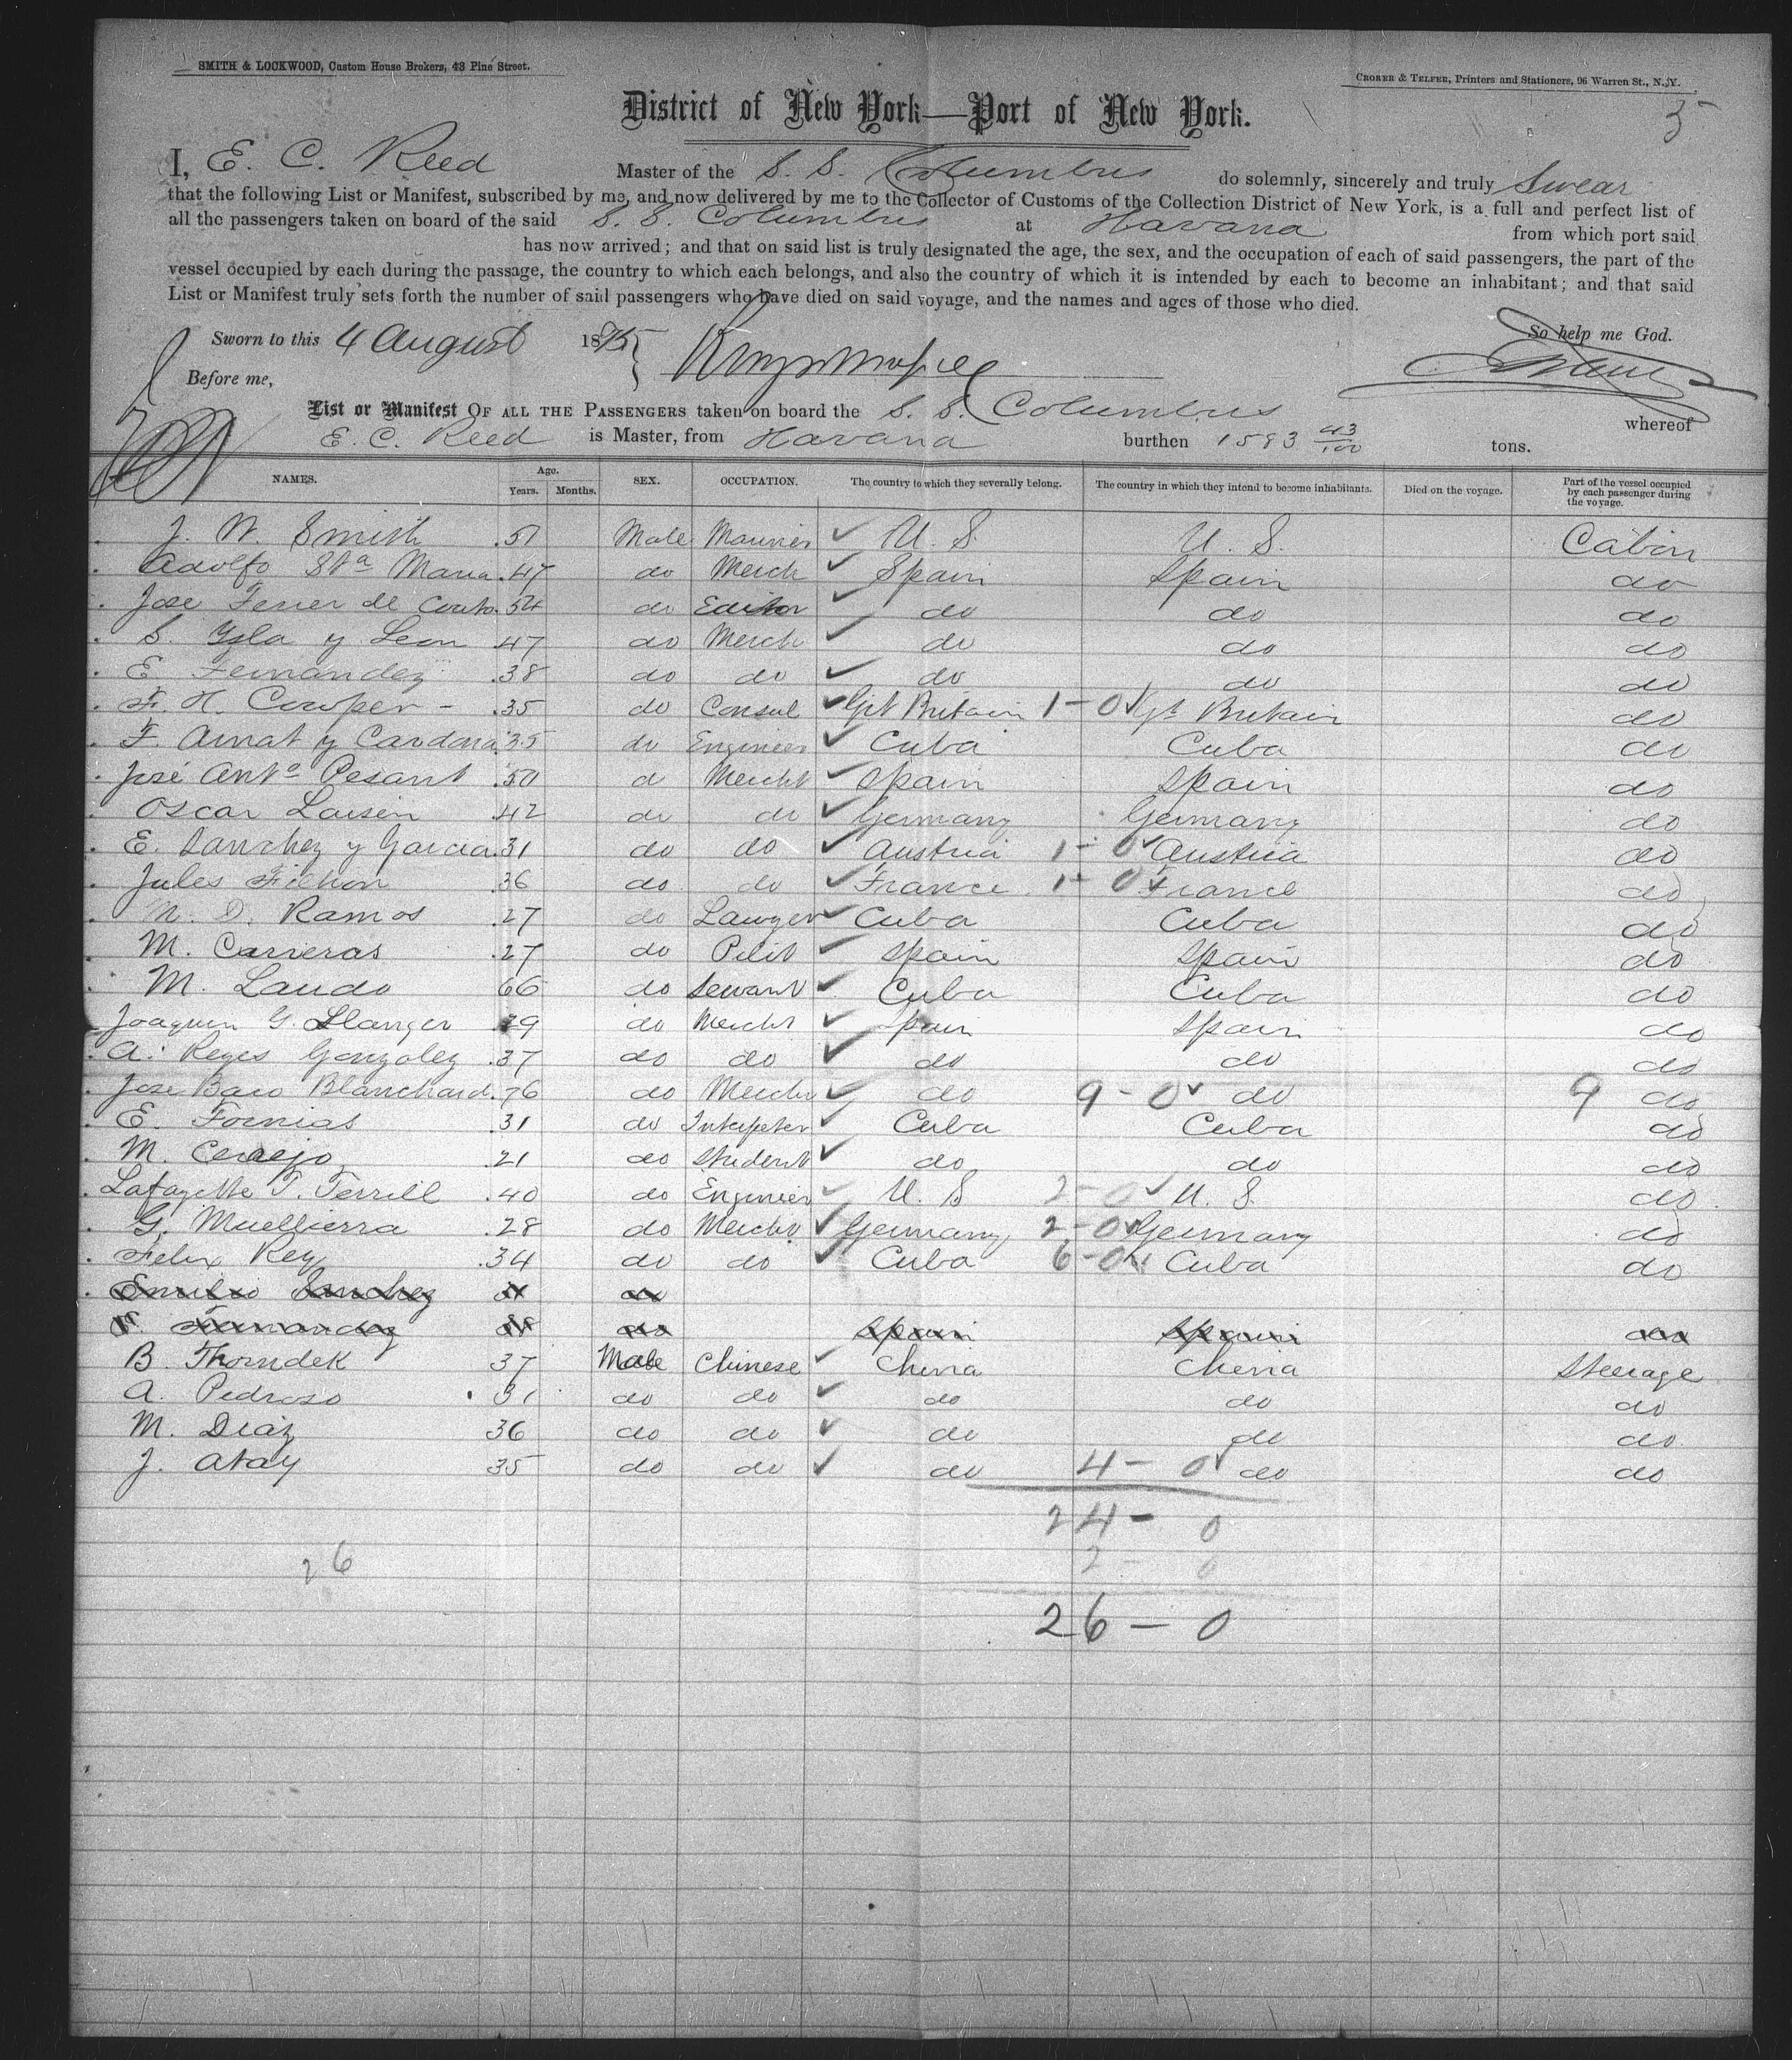 SMITH & LOCKWOOD, Custom House Brokers, 43 Pine Street.
CROKER & TELFER, Printers and Stationers, 96 Warren St., N. Y.
5
District of New York—Port of New York.
I, E. C. Reed Master of the S. S. Columbus do solemnly, sincerely and truly Swear
that the following List or Manifest, subscribed by me, and now delivered by me to the Collector of Customs of the Collection District of New York, is a full and perfect list of
all the passengers taken on board of the said S. S. Columbus at Havana from which port said
has now arrived; and that on said list is truly designated the age, the sex, and the occupation of each of said passengers, the part of the
vessel occupied by each during the passage, the country to which each belongs, and also the country of which it is intended by each to become an inhabitant; and that said
List or Manifest truly sets forth the number of said passengers who have died on said voyage, and the names and ages of those who died.
Sworn to this 4 August 1875 So help me God.
Before me,
List or Manifest OF ALL THE PASSENGERS taken on board the S. S. Columbus whereof
E. C. Reed is Master, from Havana burthen 1593 43/100 tons.
NAMES. Age. Years. Months. SEX. OCCUPATION. The country to which they severally belong. The country in which they intend to become inhabitants. Died on the voyage. Part of the vessel occupied by each passenger during the voyage.
J. W. Smith 51 Male Mariner U. S. U. S. Cabin
Adolfo Sta Maria 47 do Merch Spain Spain do
Jose Ferrer de Couto 54 do Editor do do do
S. Ysla y Leon 47 do Merch do do do
E. Fernandez 38 do do do do do
F. H. Cowper - 35 do Consul Gt Britain 1-0 Gt Britain do
F. Amat y Cardona 35 do Engineer Cuba Cuba do
José Anto Pesant 50 d Mercht Spain Spain do
Oscar Larsen 42 do do Germany Germany do
E. Sanchez y Garcia 31 do do Austria 1-0 Austria do
Jules Filhon 36 do do France 1-0 France do
M. D. Ramos 27 do Lawyer Cuba Cuba do
M. Carreras 27 do Pilot Spain Spain do
M. Laudo 66 do Servant Cuba Cuba do
Joaquin G. Llanger 29 do Mercht Spain Spain do
A. Reyes Gonzalez 37 do do do do do
Jose Baro Blanchard 76 do Mercht do 9-0 do 9 do
E. Fornias 31 do Interpeter Cuba Cuba do
M. Cerejo 21 do Student do do do
Lafayette T. Terrill 40 do Engineer U. S 2-0 U. S. do
G. Muellierra 28 do Mercht Germany 2-0 Germany do
Felix Rey 34 do do Cuba 6-0 Cuba do
Emilio Sanchez do
F. Fernandez 38 do Spain Spain do
B. Thorndek 37 Male Chinese China China Steerage
A. Pedroso 31 do do do do do
M. Diaz 36 do do do do do
J. Atay 35 do do do 4-0 do do
24-0
2-0
26
26-0